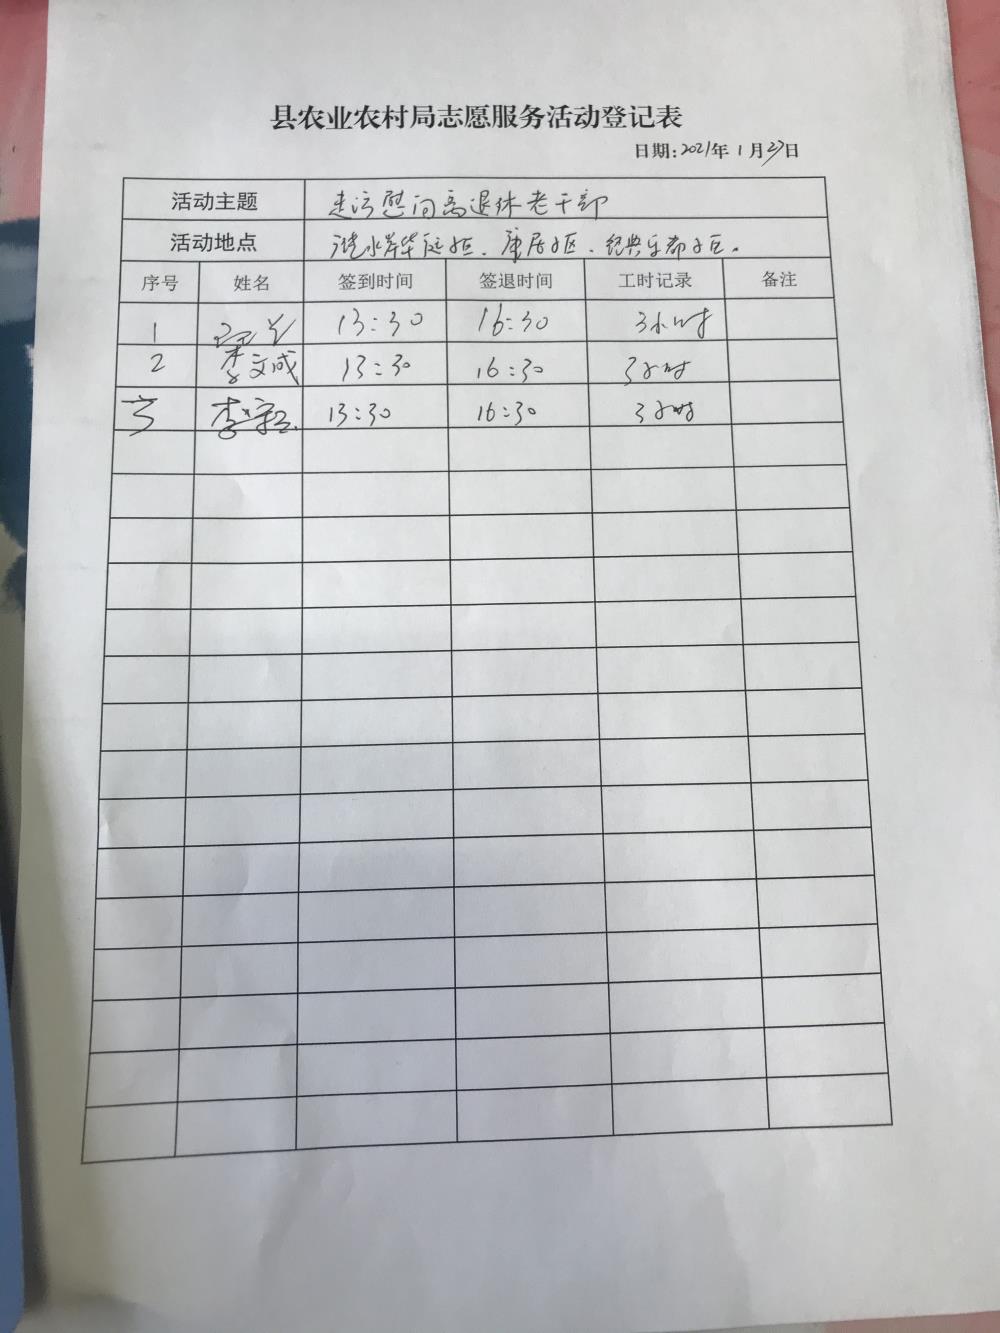 县农业农村局志愿服务活动登记表
日期:2021年1月27日
活动主题 走访慰问离退休老干部
活动地点 涟水岸华庭小区、康居小区、经典乐都小区。
序号 姓名 签到时间 签退时间 工时记录 备注
1 13:30 16:30 3小时
2 李文成 13:30 16:30 3小时
3 李 13:30 16:30 3小时